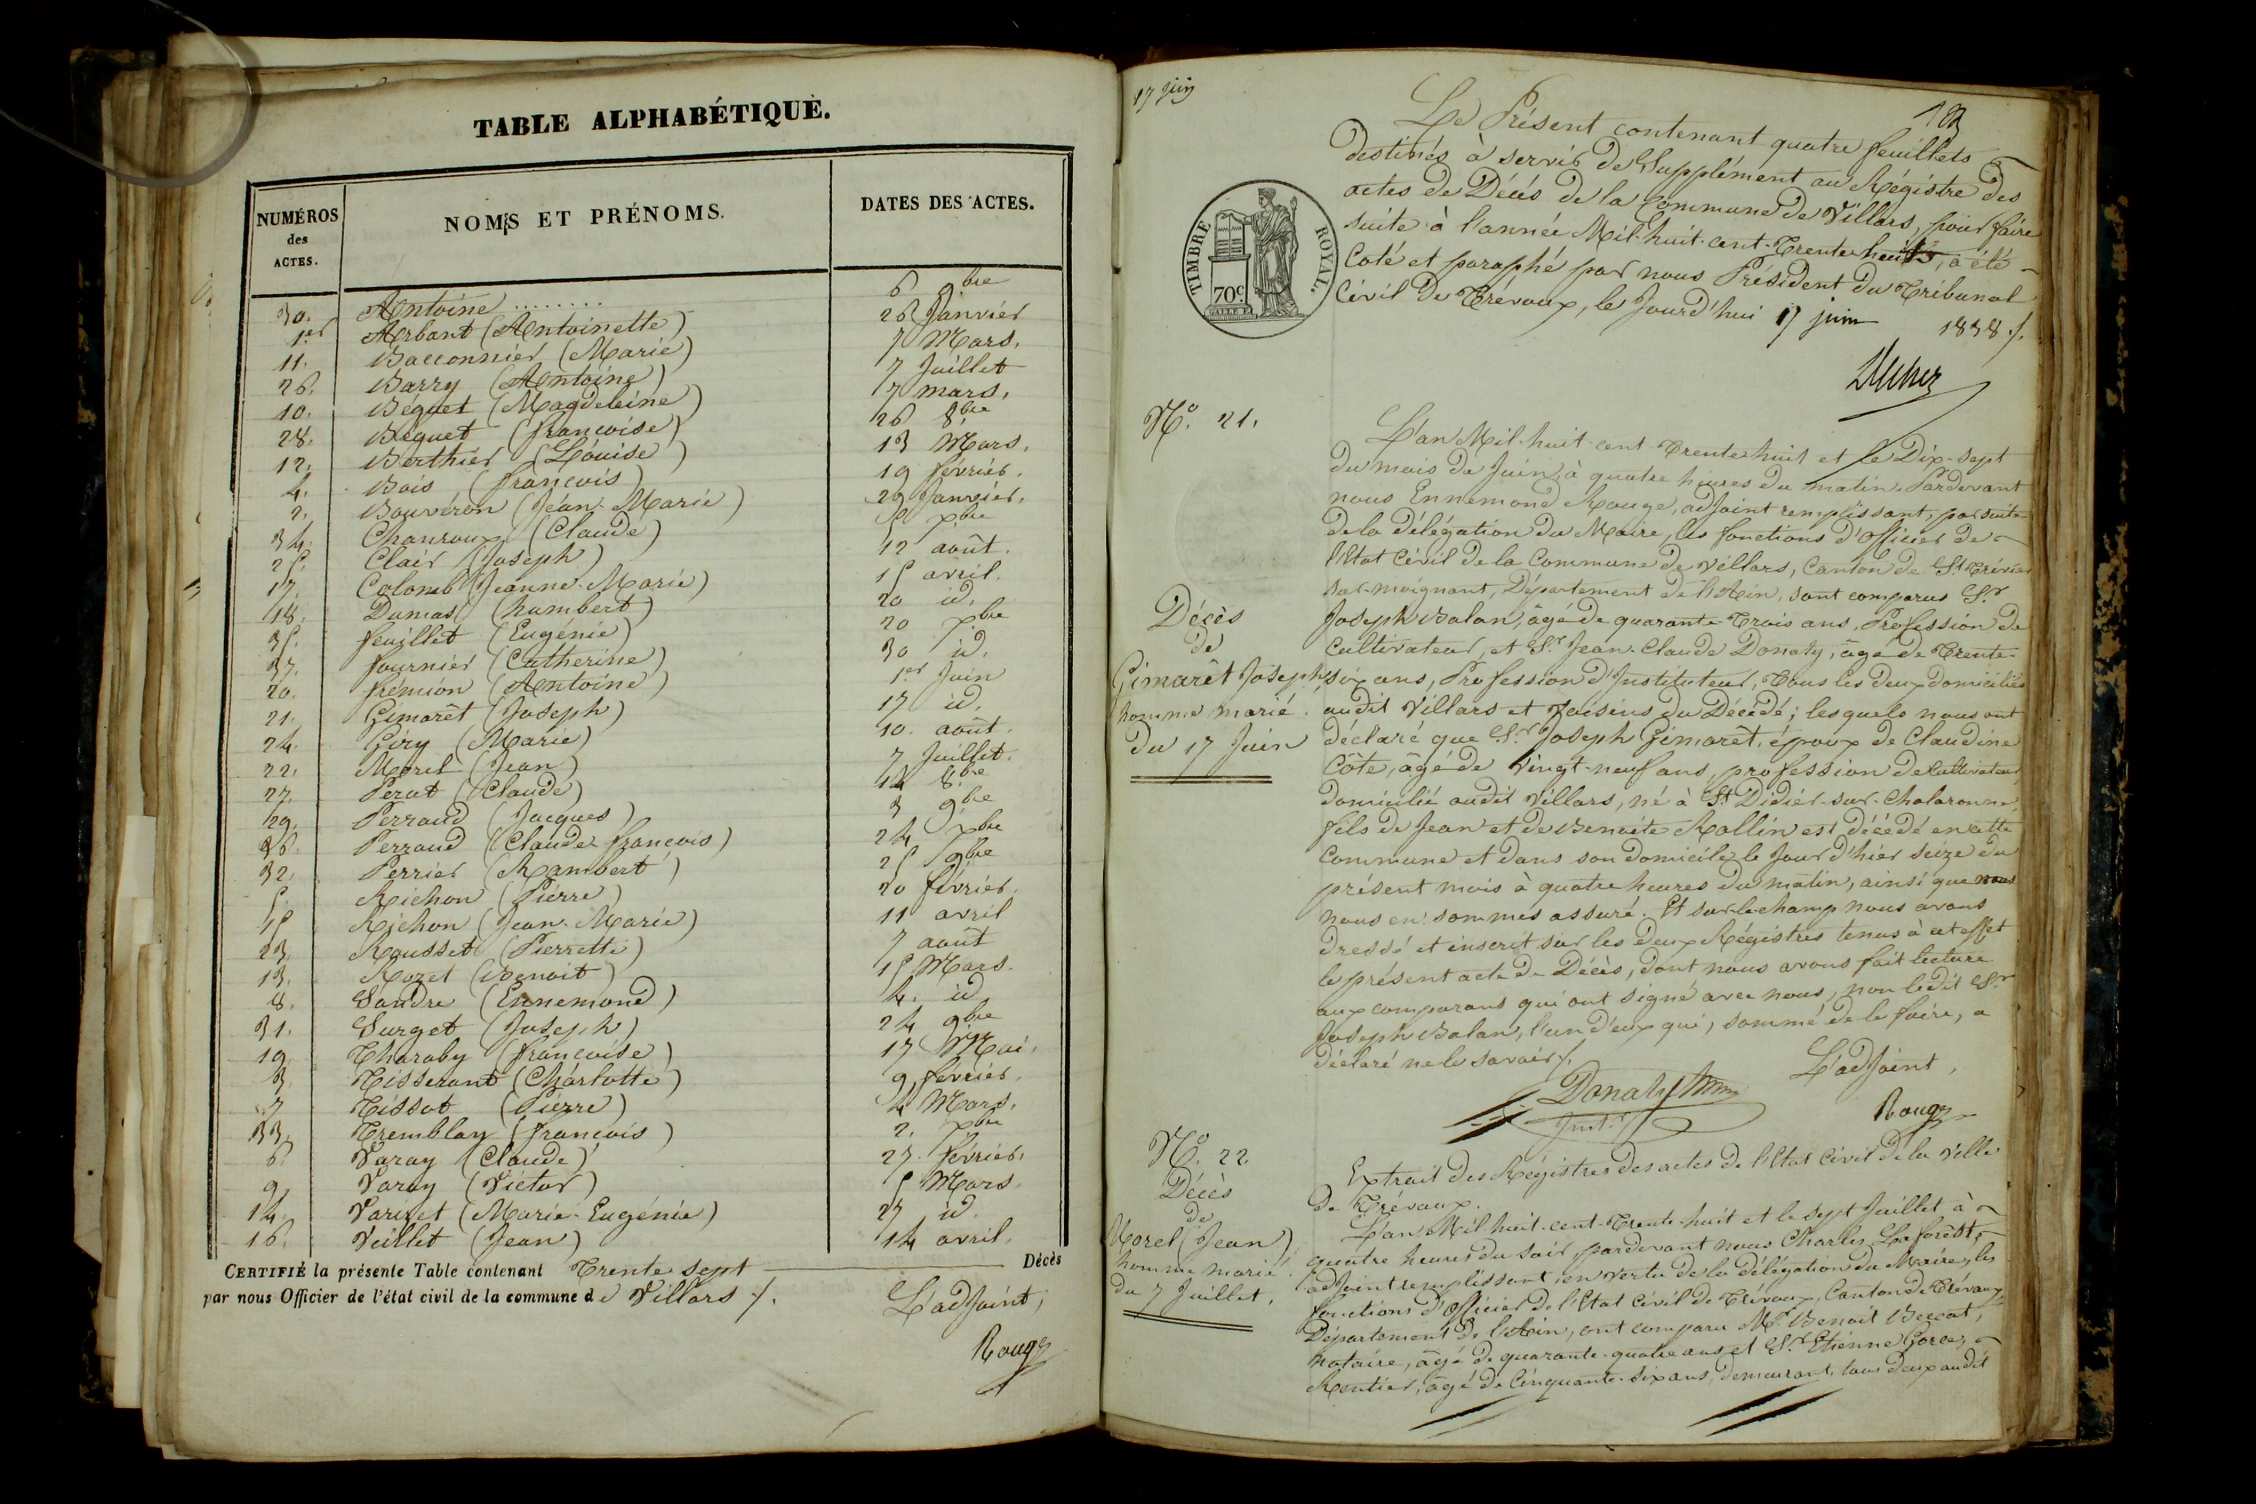 TABLE ALPHABÉTIQUE.
NUMÉROS des ACTES. NOMS ET PRÉNOMS. DATES DES ACTES.
30. Antoine ........ 6 9bre
1er Arbant (Antoinette) 26 Janvier
11. Bacconnier (Marie) 7 Mars.
26. Barry (Antoine) 7 Juillet
10. Béguet (Magdeleine) 7 mars.
28. Béguet (françoise) 26 8bre
12. Berthier (Louise) 13 Mars.
4. Bois (françois) 19 février.
2. Bouvéron (Jean-Marie) 29 Janvier.
34. Chanroux (Claude) 5 xbre
25. Clair (Joseph) 12 août.
17. Colomb (Jeanne-Marie) 15 avril.
18. Dumas (humbert) 20 id.
35. feuillet (Eugénie) 20 xbre
37. fournier (Catherine) 30 id.
20. frémion (Antoine) 1er Juin
21. Gimarêt (Joseph) 17 id.
24. Giry (Marie) 10. août.
22. Morel (Jean) 7 Juillet.
27. Perat (Claude) 14 8bre
29. Perraud (Jacques) 3 9bre
36. Perraud (Claude françois) 24 xbre
32. Perrier (Rambert) 25 9bre
5. Richon (Pierre) 20 février.
15 Richon (Jean-Marie) 11 avril
23. Rousset (Pierrette) 7 août
13. Rozet (Benoit) 15 Mars.
8. Sandre (Ennemond) 4. id
31. Surget (Joseph) 24 9bre
19. Tharaby (françoise) 17 Mai.
3. Tisserand (Charlotte) 9 février.
7 Tissot (Pierre) 4 Mars.
33. Tremblay (françois) 2. xbre
6. Varay (Claude) 27. février.
9. Varay (Victor) 5 Mars.
14. Variret (Marie-Eugénie) 27 id.
16. Veillet (Jean) 14 avril.
CERTIFIÉ la présente Table contenant Trente sept Décès
par nous Officier de l'état civil de la commune de Villars ./.
L'adjoint,
Rouge
17 juin
Le Présent contenant quatre feuillets
destinés à servir de Supplément au Régistre des
actes de Décès de la Commune de Villars, pour faire
suite à l'année Mil-huit-cent-Trente-huit, a été
Coté et paraphé par nous Président du Tribunal
Civil de Trévoux, le Jourd'hui 17 juin 1838 ./.
TIMBRE ROYAL.
70c.
No. 21.
Décès
de
Gimarêt Joseph,
homme marié.
du 17 Juin
L'an Mil-huit-cent-Trente-huit et le Dix-sept
du mois de Juin, à quatre heures du matin. Pardevant
nous Ennemond Rouge, adjoint remplissant, par suite
de la délégation du Maire, les fonctions d'Officier de
l'Etat Civil de la Commune de Villars, Canton de St. Trivier
sur-moignant, Département de l'Ain, sont comparus Sr.
Joseph Balan, âgé de quarante-Trois ans, Profession de
Cultivateur, et Sr. Jean-Claude Donaty, âgé de Trente-
six ans, Profession d'Instituteur, Tous les deux domiciliés
audit Villars et Voisins du Décédé; lesquels nous ont
déclaré que Sr. Joseph Gimarêt, époux de Claudine
Côte, âgé de Vingt-neuf ans, profession de Cultivateur,
domicilié audit Villars, né à St. Didier-sur-Chalaronne,
fils de Jean et de Benoite Rollin est décédé en cette
Commune et dans son domicile le Jour d'hier seize du
présent mois à quatre heures du matin, ainsi que nous
nous en sommes assuré. Et sur-le-champ nous avons
dressé et inscrit sur les deux Régistres tenus à cet effet
le présent acte de Décès, dont nous avons fait lecture
aux comparans qui ont signé avec nous, non ledit Sr.
Joseph Balan, l'un d'eux qui, sommé de le faire, a
déclaré ne le savoir ./.
Donaty
Inst.r
L'adjoint,
Rouge
No. 22
Décès
de
Morel (Jean)
homme marié.
du 7 Juillet.
Extrait des Régistres des actes de l'Etat Civil de la Ville
de Trévoux.
L'an Mil huit-cent-Trente-huit et le sept Juillet à
quatre heures du soir, pardevant nous Charles Laforêst,
l'adjoint remplissant, en vertu de la délégation du Maire, les
fonctions d'Officier de l'Etat Civil de Trévoux, Canton de Trévoux,
Département de l'Ain, ont comparu Mr. Benoit Beccat,
notaire, âgé de quarante-quatre ans et Sr. Etienne
Rentier, âgé de Cinquante-six ans, demeurant tous deux audit